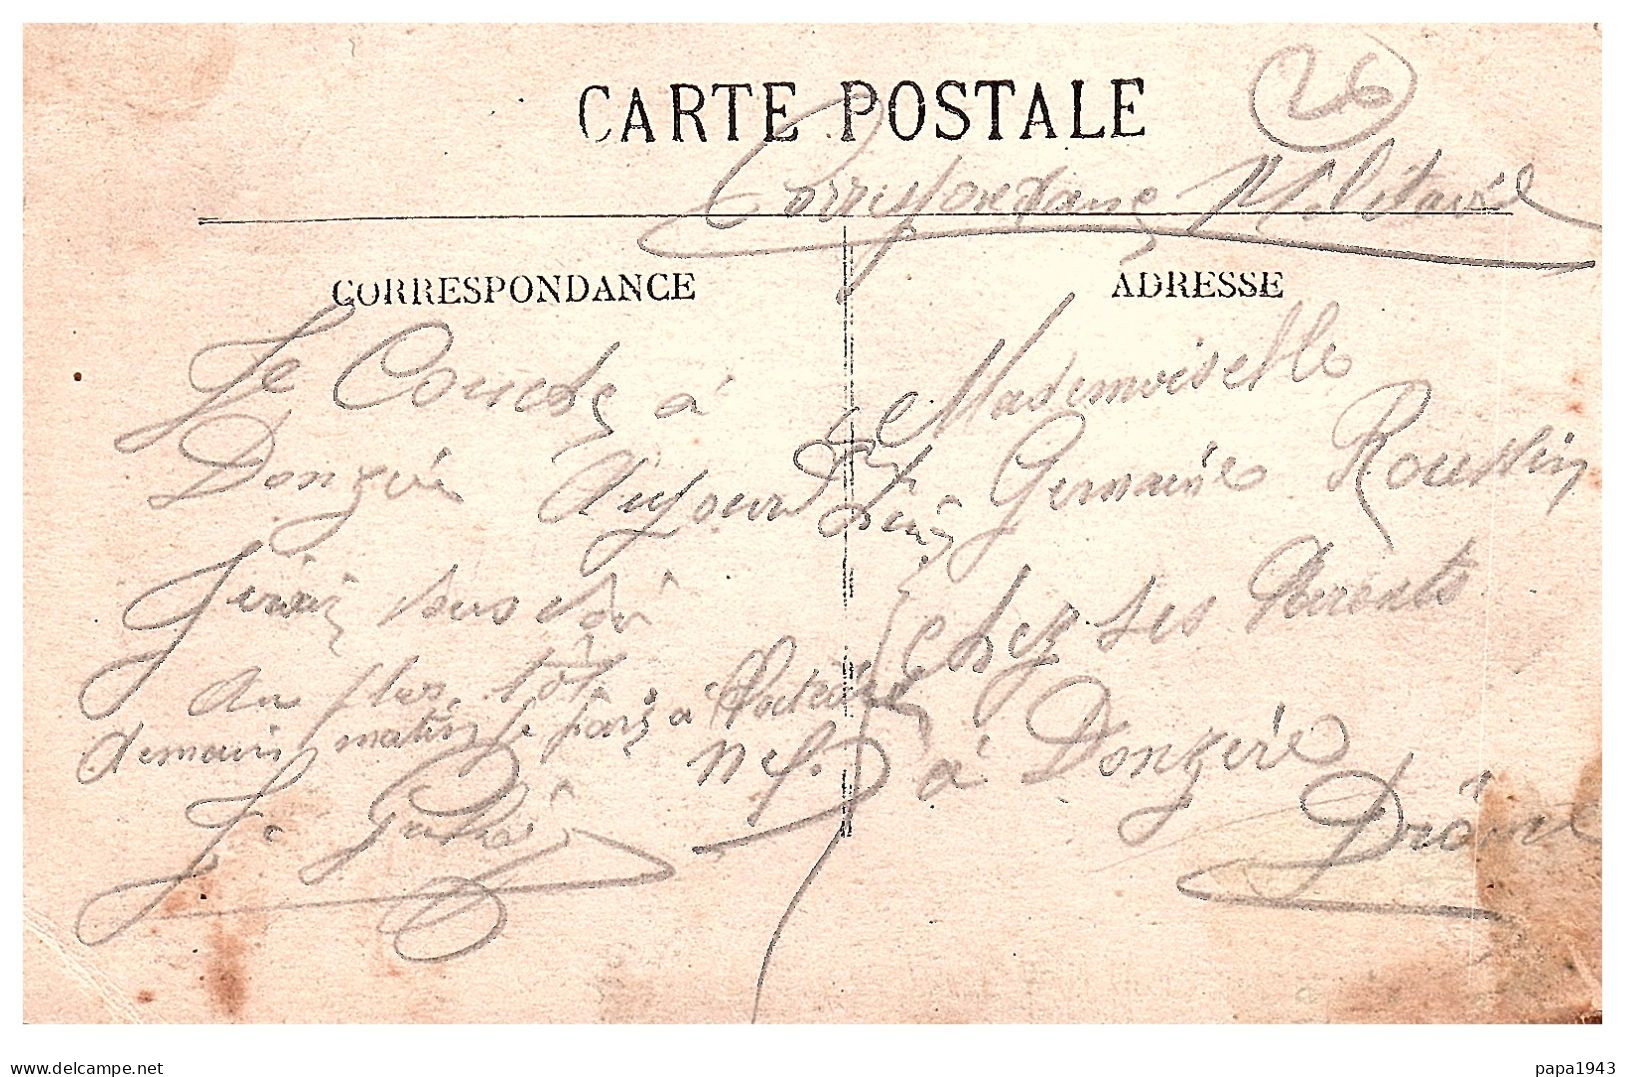 CARTE POSTALE
26
Correspondance Militaire
CORRESPONDANCE
Je Couche à
Donzère Aujourd'hui
J'irai vous voir
Au plus tôt
demain matin je pars à
J.
ADRESSE
Mademoiselle
Germaine Roussin
chez ses Parents
à Donzère
Drôme
www.delcampe.net
papa1943